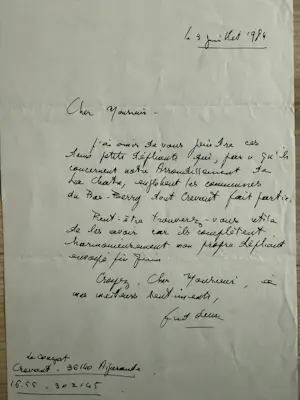 le 3 juillet 1984
Cher Monsieur -
J'ai omis de vous joindre ces
deux petits dépliants qui, parce qu'ils
concernent notre Arrondissement de
La Châtre, englobent les communes
du Bas-Berry dont Crevant fait partie.
Peut-être trouverez-vous utile
de les avoir car ils complètent
harmonieusement mon propre dépliant
envoyé fin Juin
Croyez, Cher Monsieur, à
mes meilleurs sentiments,
Crevant - 36140 Aigurande